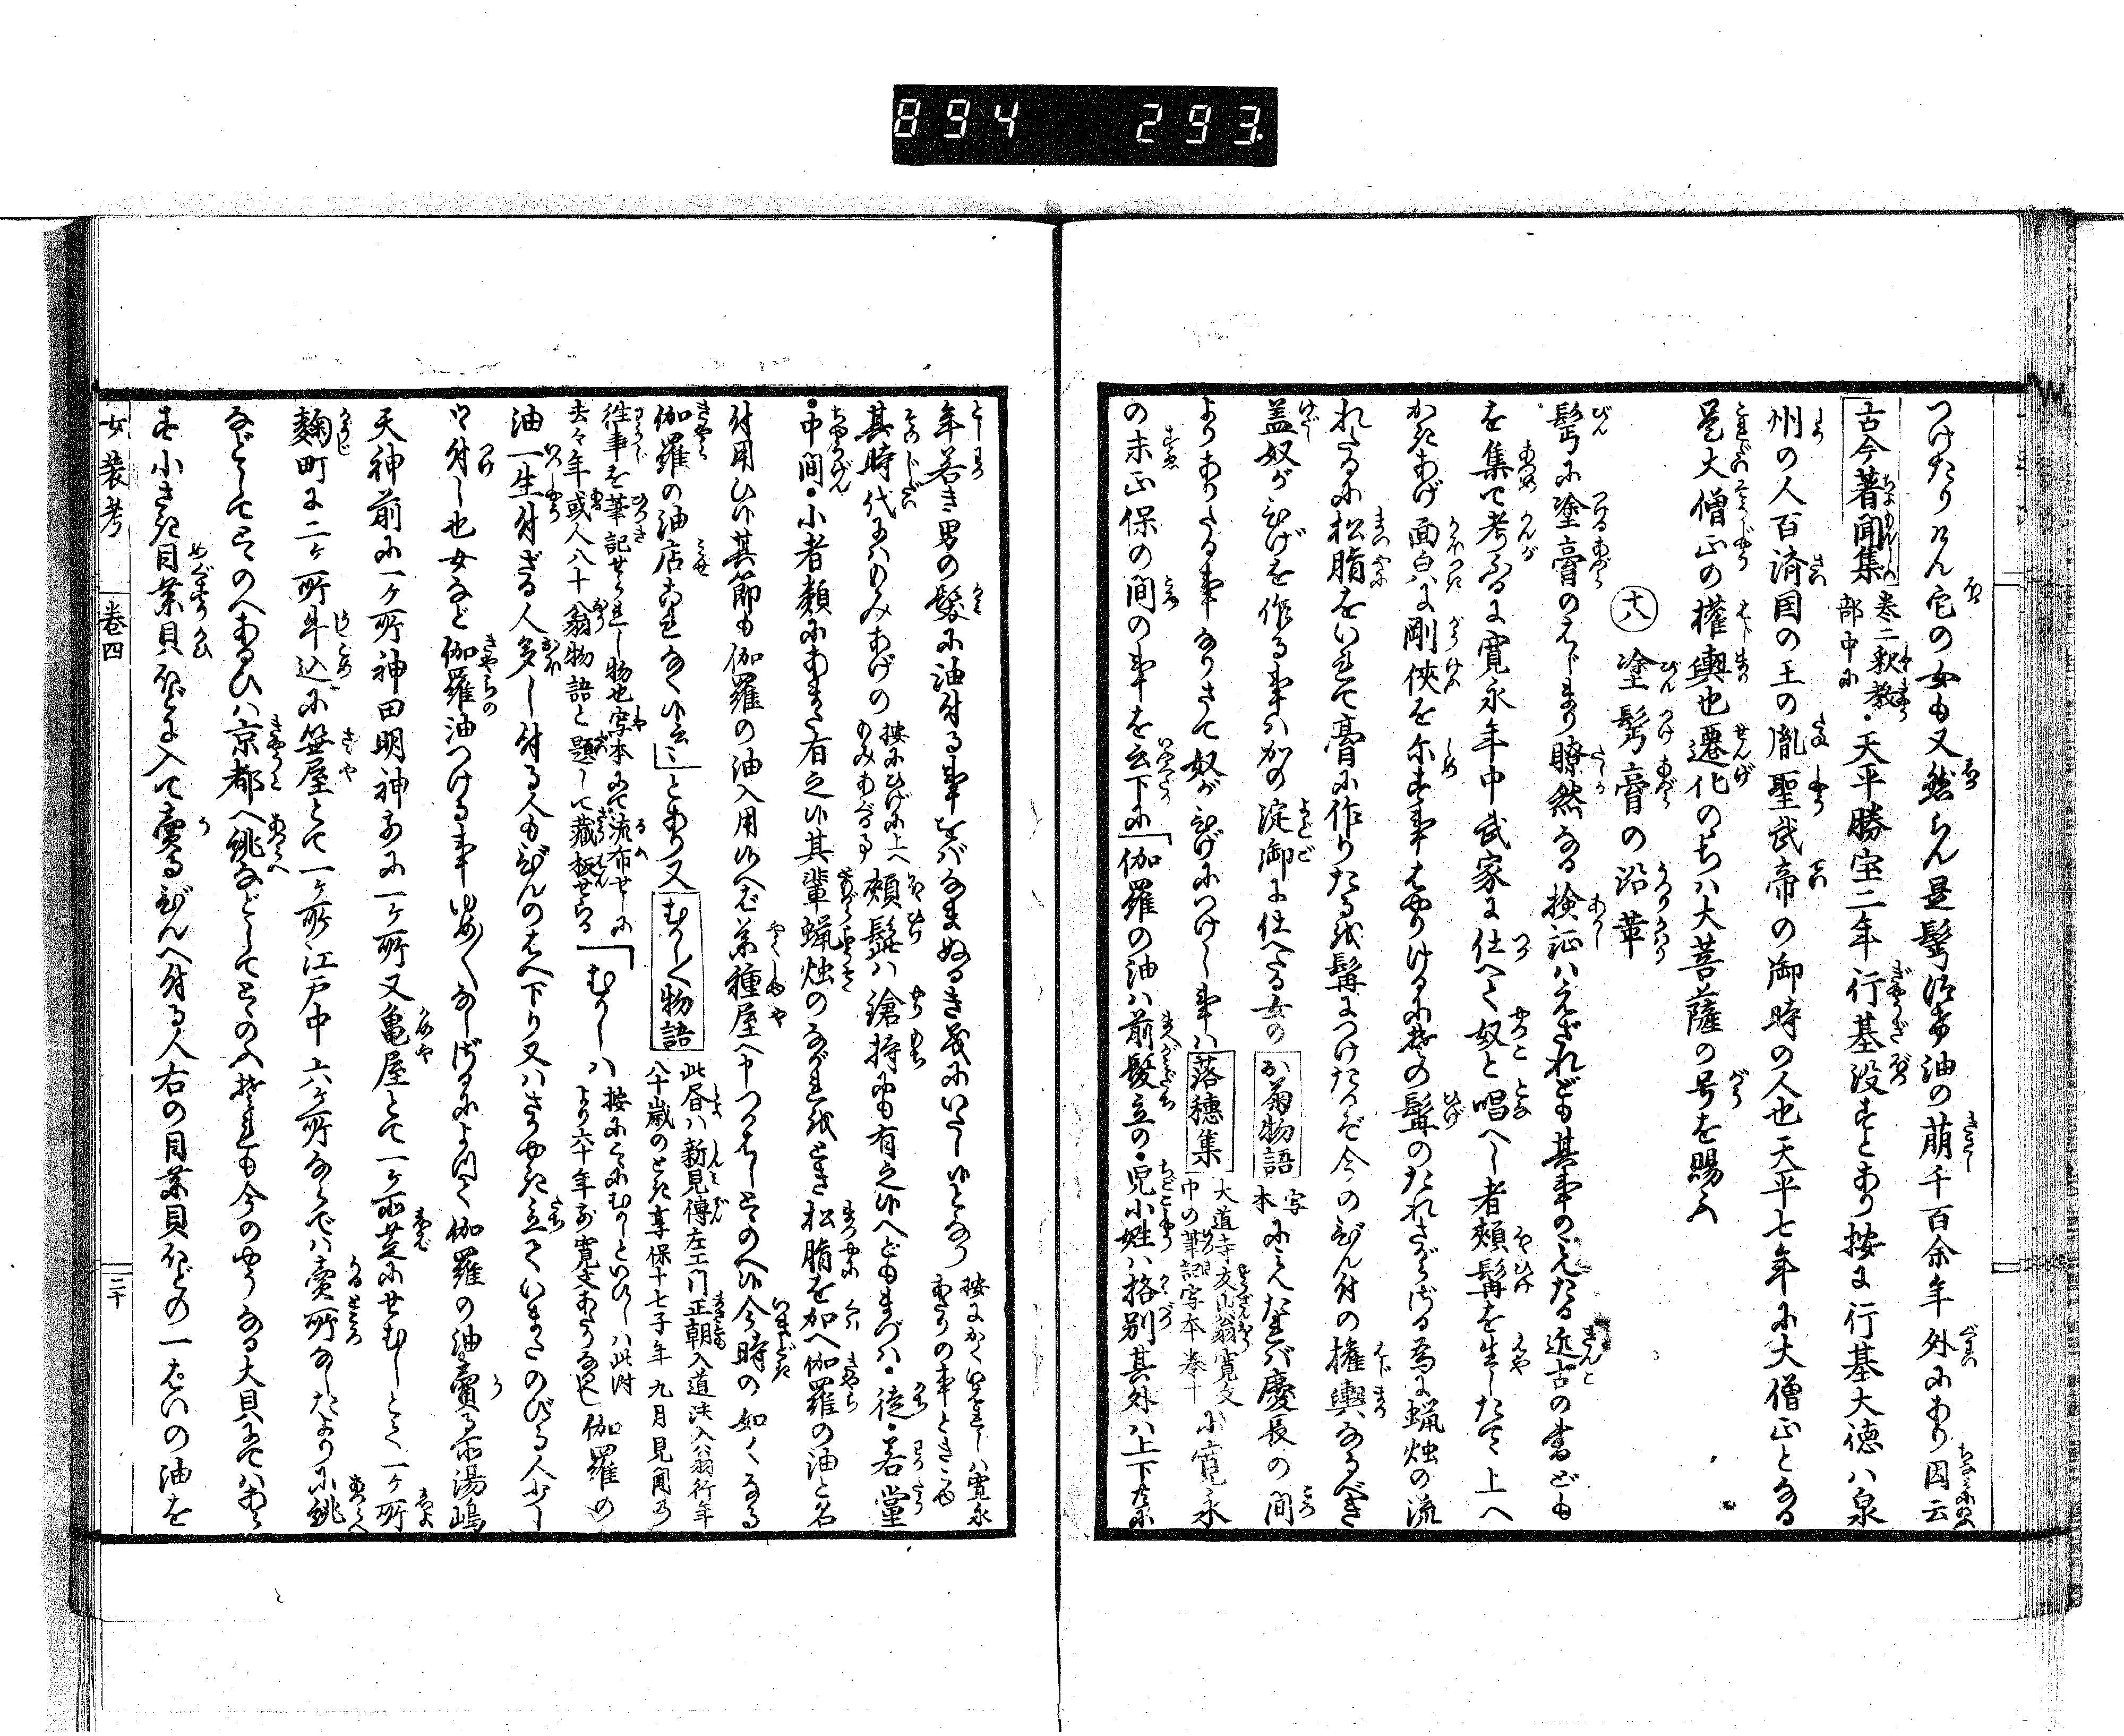 894 293.
つけたりけん它の女も又然らん是鬢付油の萠千百余年外にあり因云
古今著聞集 巻二釈教部中に・天平勝宝二年行基没すとあり按に行基大徳ハ泉
州の人百済国の王の胤聖武帝の御時の人也天平七年に大僧正となる
是大僧正の権輿也遷化のちハ大菩薩の号を賜ふ
十八 塗鬢膏の沿革
髩に塗膏のはじまり瞭然なる検証ハえざれども其事のみえたる近古の書ども
を集て考ふるに寛永年中武家に仕へて奴と唱へし者頬髯を生したて上へ
かきあげ面白に剛侠を示す事はやりけるに其の髯のたれさがらざる為に蝋燭の流
れたるに松脂をいれて膏に作りたるを髯につけたるぞ今のびん付の権輿なるべき
蓋奴がひげを作る事ハかの淀御に仕へたる女の お菊物語 写本 にみえたれば慶長の間
よりありたる事なりさて奴がひげにつけし事ハ 落穂集 大道寺友山翁寛文中の筆記写本巻十 に寛永
の末正保の間の事を云下に「伽羅の油ハ前髪立の・児小姓ハ格別其外ハ上下共に
年若き男の髪に油付る事をばなまぬるき義にいたし候となり 按にかくいはれしハ寛永あたりの事ときこゆ
其時代にハもみあげの 按にひげに上へもみあぐる事 頬髭ハ鎗持にも有之候へどもまづハ・徒・若党
・中間・小者類にあまた有之候其輩蝋燭のながれをとき松脂を加へ伽羅の油と名
付用ひ候其節も伽羅の油入用候へば薬種屋へ申つかはしとゝのへ候今時の如くなる
伽羅の油店あまたなく候云云」とあり又 むかし〳〵物語 此書ハ新見伝左エ門正朝入道法入翁行年八十歳のとき享保十七子年九月見聞の
往事を筆記せられし物也写本にて流布せしに去々年或人八十翁物語と題して蔵板せらる 「むかしハ 按にこゝにむかしといひしハ此时より六十年前寛文あたりなるべし 伽羅の
油一生付ざる人多し付る人もびんのはへ下り又ハさかやき立ていまだのびる人少し
ツヽ付し也女など伽羅油つける事ゆめ〳〵なしざるによりて伽羅の油賣る所湯嶋
天神前に一ヶ所神田明神前に一ヶ所又亀屋とて一ヶ所芝にせむしとて一ヶ所
麹町に二ヶ所牛込に笹屋とて一ヶ所江戸中六ヶ所ならでハ賣所なしたよりに誂
などしてとゝのへあるひハ京都へ誂などしてとゝのふそれも今のやうなる大貝にてハあら
ず小さき目薬貝ほどに入て賣るびんへ付る人右の目薬貝ほどの一はいの油を
女装考 巻四 二十